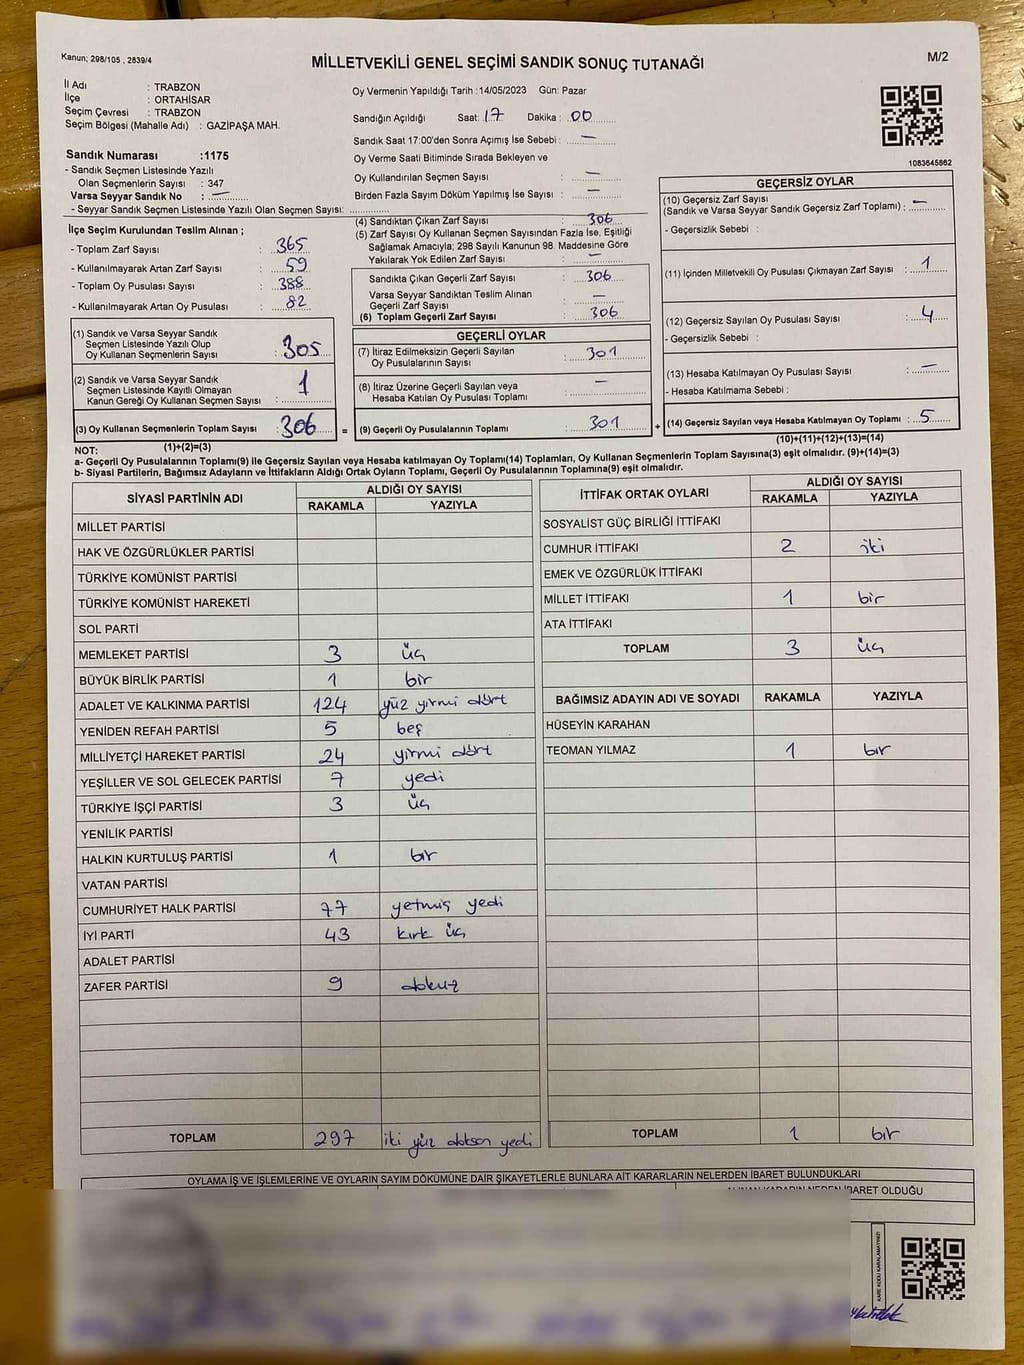 Kanun; 298/105 , 2839/4
MİLLETVEKİLİ GENEL SEÇİMİ SANDIK SONUÇ TUTANAĞI
M/2
İl Adı : TRABZON
İlçe : ORTAHİSAR
Seçim Çevresi : TRABZON
Seçim Bölgesi (Mahalle Adı) : GAZİPAŞA MAH.
Sandık Numarası :1175
- Sandık Seçmen Listesinde Yazılı
Olan Seçmenlerin Sayısı : 347
Varsa Seyyar Sandık No : —
- Seyyar Sandık Seçmen Listesinde Yazılı Olan Seçmen Sayısı:
İlçe Seçim Kurulundan Teslim Alınan ;
- Toplam Zarf Sayısı : 365
- Kullanılmayarak Artan Zarf Sayısı : 59
- Toplam Oy Pusulası Sayısı : 388
- Kullanılmayarak Artan Oy Pusulası : 82
(1) Sandık ve Varsa Seyyar Sandık
Seçmen Listesinde Yazılı Olup
Oy Kullanan Seçmenlerin Sayısı : 305
(2) Sandık ve Varsa Seyyar Sandık
Seçmen Listesinde Kayıtlı Olmayan
Kanun Gereği Oy Kullanan Seçmen Sayısı : 1
(3) Oy Kullanan Seçmenlerin Toplam Sayısı : 306 =
(1)+(2)=(3)
Oy Vermenin Yapıldığı Tarih :14/05/2023 Gün: Pazar
Sandığın Açıldığı Saat: 17 Dakika : 00
Sandık Saat 17:00'den Sonra Açımış İse Sebebi : —
Oy Verme Saati Bitiminde Sırada Bekleyen ve
Oy Kullandırılan Seçmen Sayısı : —
Birden Fazla Sayım Döküm Yapılmış İse Sayısı : —
(4) Sandıktan Çıkan Zarf Sayısı : 306
(5) Zarf Sayısı Oy Kullanan Seçmen Sayısından Fazla İse, Eşitliği
Sağlamak Amacıyla; 298 Sayılı Kanunun 98. Maddesine Göre
Yakılarak Yok Edilen Zarf Sayısı : —
Sandıkta Çıkan Geçerli Zarf Sayısı : 306
Varsa Seyyar Sandıktan Teslim Alınan
Geçerli Zarf Sayısı : —
(6) Toplam Geçerli Zarf Sayısı : 306
GEÇERLİ OYLAR
(7) İtiraz Edilmeksizin Geçerli Sayılan
Oy Pusulalarının Sayısı : 301
(8) İtiraz Üzerine Geçerli Sayılan veya
Hesaba Katılan Oy Pusulası Toplamı : —
(9) Geçerli Oy Pusulalarının Toplamı : 301 +
1083645862
GEÇERSİZ OYLAR
(10) Geçersiz Zarf Sayısı
(Sandık ve Varsa Seyyar Sandık Geçersiz Zarf Toplamı) : —
- Geçersizlik Sebebi :
(11) İçinden Milletvekili Oy Pusulası Çıkmayan Zarf Sayısı : 1
(12) Geçersiz Sayılan Oy Pusulası Sayısı : 4
- Geçersizlik Sebebi :
(13) Hesaba Katılmayan Oy Pusulası Sayısı : —
- Hesaba Katılmama Sebebi :
(14) Geçersiz Sayılan veya Hesaba Katılmayan Oy Toplamı : 5
(10)+(11)+(12)+(13)=(14)
NOT:
a- Geçerli Oy Pusulalarının Toplamı(9) ile Geçersiz Sayılan veya Hesaba Katılmayan Oy Toplamı(14) Toplamları, Oy Kullanan Seçmenlerin Toplam Sayısına(3) eşit olmalıdır. (9)+(14)=(3)
b- Siyasi Partilerin, Bağımsız Adayların ve İttifakların Aldığı Ortak Oyların Toplamı, Geçerli Oy Pusulalarının Toplamına(9) eşit olmalıdır.
SİYASİ PARTİNİN ADI ALDIĞI OY SAYISI
RAKAMLA YAZIYLA
MİLLET PARTİSİ
HAK VE ÖZGÜRLÜKLER PARTİSİ
TÜRKİYE KOMÜNİST PARTİSİ
TÜRKİYE KOMÜNİST HAREKETİ
SOL PARTİ
MEMLEKET PARTİSİ 3 üç
BÜYÜK BİRLİK PARTİSİ 1 bir
ADALET VE KALKINMA PARTİSİ 124 yüz yirmi dört
YENİDEN REFAH PARTİSİ 5 beş
MİLLİYETÇİ HAREKET PARTİSİ 24 yirmi dört
YEŞİLLER VE SOL GELECEK PARTİSİ 7 yedi
TÜRKİYE İŞÇİ PARTİSİ 3 üç
YENİLİK PARTİSİ
HALKIN KURTULUŞ PARTİSİ 1 bir
VATAN PARTİSİ
CUMHURİYET HALK PARTİSİ 77 yetmiş yedi
İYİ PARTİ 43 kırk üç
ADALET PARTİSİ
ZAFER PARTİSİ 9 dokuz
TOPLAM 297 iki yüz doksan yedi
İTTİFAK ORTAK OYLARI ALDIĞI OY SAYISI
RAKAMLA YAZIYLA
SOSYALİST GÜÇ BİRLİĞİ İTTİFAKI
CUMHUR İTTİFAKI 2 iki
EMEK VE ÖZGÜRLÜK İTTİFAKI
MİLLET İTTİFAKI 1 bir
ATA İTTİFAKI
TOPLAM 3 üç
BAĞIMSIZ ADAYIN ADI VE SOYADI RAKAMLA YAZIYLA
HÜSEYİN KARAHAN
TEOMAN YILMAZ 1 bir
TOPLAM 1 bir
OYLAMA İŞ VE İŞLEMLERİNE VE OYLARIN SAYIM DÖKÜMÜNE DAİR ŞİKAYETLERLE BUNLARA AİT KARARLARIN NELERDEN İBARET BULUNDUKLARI
ALINAN KARARIN NEDEN İBARET OLDUĞU
KARE KODU KARALAMAYINIZ!